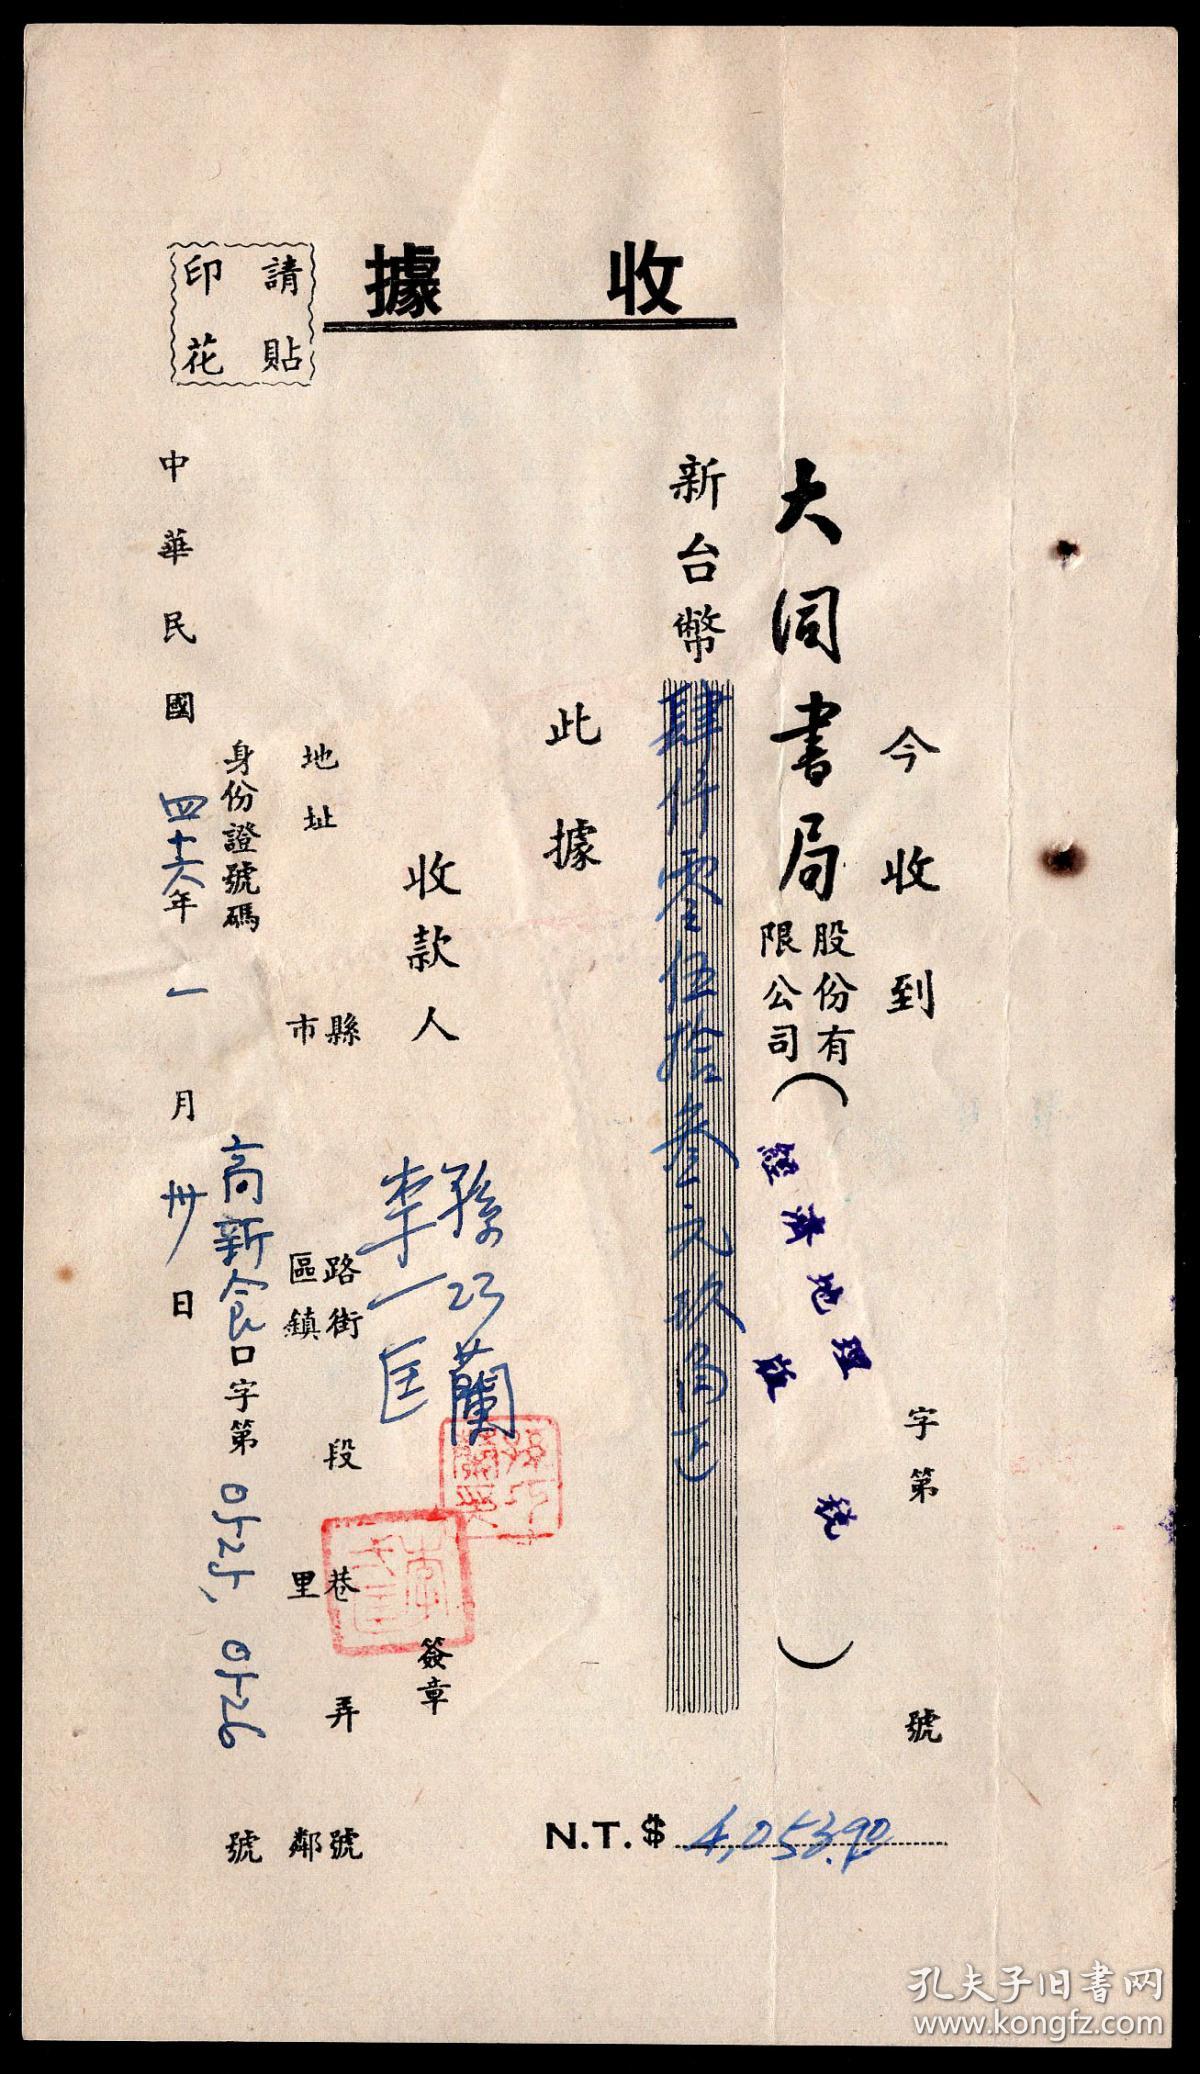 收據
請貼
印花
字第 號
今收到
大同書局股份有限公司(經濟地理版稅)
新台幣肆仟零伍拾叁元玖角正
此據
N.T.$ 4,053.90
收款人 孫巧蘭
李一匡
簽章
地址 縣市 路街 區鎮 段 巷 里 弄 號 鄰
身份證號碼 高新食口字第 號
中華民國四十六年一月卅日
孔夫子旧书网
www.kongfz.com